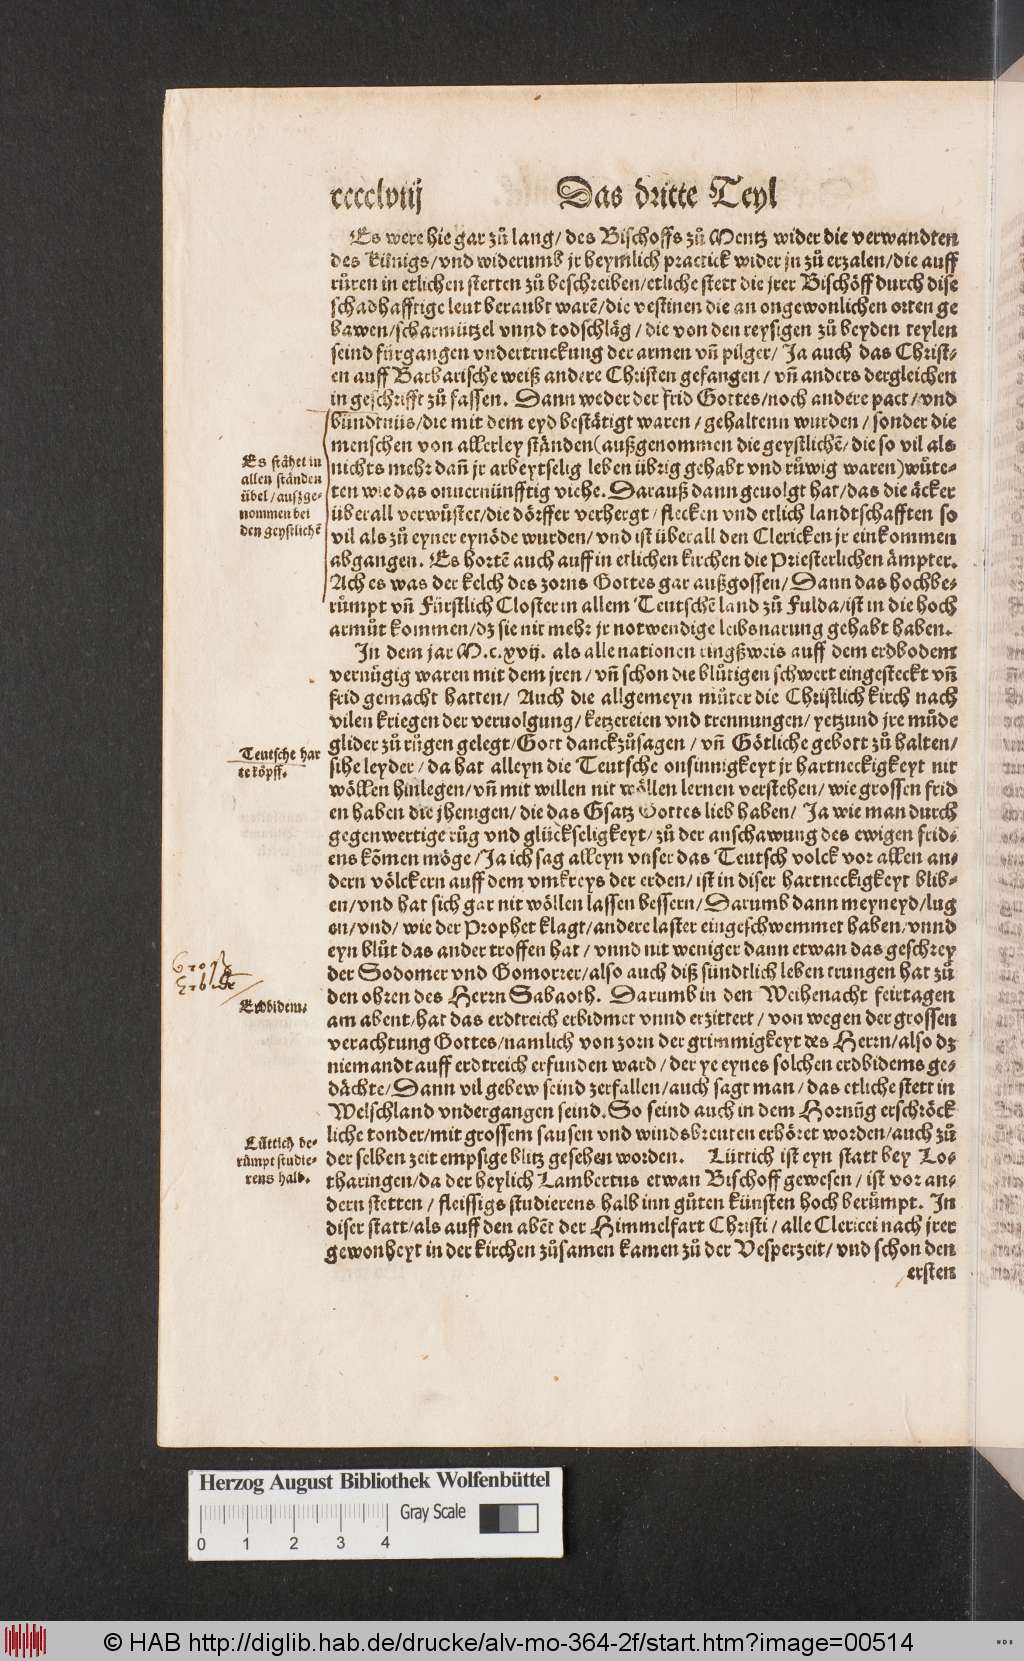 ccccłviij Das dritte Teyl
Es were hie gar zů lang/ des Bischoffs zů Mentz wider die verwandten
des Künigs/ vnd widerumb jr heymlich practick wider jn zů erzalen/ die auff
růren in etlichen stetten zů beschreiben/ etliche stett die jrer Bischöff durch dise
schadhafftige leut beraubt warē/ die vestinen die an ongewonlichen orten ge
bawen/ scharmützel vnnd todschläg/ die von den reysigen zů beyden teylen
seind fürgangen vndertruckung der armen vñ pilger/ Ja auch das Christ-
en auff Barbarische weiß andere Christen gefangen/ vñ anders dergleichen
in geschrifft zů fassen. Dann weder der frid Gottes/ noch andere pact/ vnd
bündtnüs/ die mit dem eyd bestätigt waren/ gehaltenn wurden/ sonder die
menschen von allerley ständen (außgenommen die geystlichē/ die so vil als
nichts mehr dañ jr arbeytselig leben übrig gehabt vnd růwig waren) wůte-
ten wie das onuernünfftig viehe. Darauß dann geuolgt hat/ das die äcker
überall verwůstet/ die dörffer verhergt/ flecken vnd etlich landtschafften so
vil als zů eyner eynöde wurden/ vnd ist überall den Clericken jr einkommen
abgangen. Es hortē auch auff in etlichen kirchen die Priesterlichen ämpter.
Ach es was der kelch des zorns Gottes gar außgossen/ Dann das hochbe-
růmpt vñ Fürstlich Closter in allem Teutschē land zů Fulda/ ist in die hoch
armůt kommen/ dz sie nit mehr jr notwendige leibsnarung gehabt haben.
Es stähet in
allen ständen
übel/ außge-
nommen bei
den geystlichē
In dem jar M.c.xvij. als alle nationen ringßweis auff dem erdbodem
vernügig waren mit dem jren/ vñ schon die blůtigen schwert eingesteckt vñ
frid gemacht hatten/ Auch die allgemeyn můter die Christlich kirch nach
vilen kriegen der veruolgung/ ketzereien vnd trennungen/ yetzund jre můde
glider zů růgen gelegt/ Gott danckzůsagen/ vñ Götliche gebott zů halten/
sihe leyder/ da hat alleyn die Teutsche onsinnigkeyt jr hartneckigkeyt nit
wöllen hinlegen/ vñ mit willen nit wöllen lernen verstehen/ wie grossen frid
en haben die jhenigen/ die das Gsatz Gottes lieb haben/ Ja wie man durch
gegenwertige růg vnd glückseligkeyt/ zů der anschawung des ewigen frid-
ens kömen möge/ Ja ich sag alleyn vnser das Teutsch volck vor allen an-
dern völckern auff dem vmkreys der erden/ ist in diser hartneckigkeyt blib-
en/ vnd hat sich gar nit wöllen lassen bessern/ Darumb dann meyneyd/ lug
en/ vnd/ wie der Prophet klagt/ andere laster eingeschwemmet haben/ vnnd
eyn blůt das ander troffen hat/ vnnd nit weniger dann etwan das geschrey
der Sodomer vnd Gomorrer/ also auch diß sündtlich leben trungen hat zů
den ohren des Herrn Sabaoth. Darumb in den Weihenacht feirtagen
am abent/ hat das erdtreich erbidmet vnnd erzittert/ von wegen der grossen
verachtung Gottes/ namlich von zorn der grimmigkeyt des Herrn/ also dz
niemandt auff erdtreich erfunden ward/ der ye eynes solchen erdbidems ge-
dächte/ Dann vil gebew seind zerfallen/ auch sagt man/ das etliche stett in
Welschland vndergangen seind. So seind auch in dem Hornūg erschröck
liche tonder/ mit grossem sausen vnd windsbreuten erhöret worden/ auch zů
der selben zeit empsige blitz gesehen worden. Lüttich ist eyn statt bey Lo-
tharingen/ da der heylich Lambertus etwan Bischoff gewesen/ ist vor an-
dern stetten/ fleissigs studierens halb inn gůten künsten hoch berůmpt. In
diser statt/ als auff den abēt der Himmelfart Christi/ alle Clericci nach jrer
gewonheyt in der kirchen zůsamen kamen zů der Vesperzeit/ vnd schon den
ersten
Teutsche har
te köpff.
Groß
Erbidē
Erdbidem.
Lüttich be-
růmpt studie-
rens halb.
Herzog August Bibliothek Wolfenbüttel
Gray Scale
0 1 2 3 4
© HAB http://diglib.hab.de/drucke/alv-mo-364-2f/start.htm?image=00514